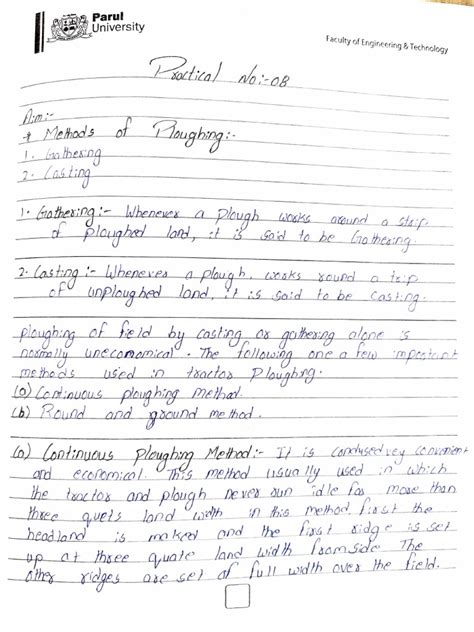 Parul
University
Faculty of Engineering & Technology
Practical No:-08
Aim:-
→ Methods of Ploughing:-
1. Gathering
2. Casting
1. Gathering:- Whenever a Plough works around a strip
of ploughed land, it is said to be Gathering
2. Casting:- Whenever a plough, works round a trip
of unploughed land, it is said to be casting.
ploughing of field by casting or gathering alone is
normally uneconomical. The following one a few important
methods used in tractor Ploughing.
(a) Continuous ploughing method.
(b) Round and ground method.
(a) Continuous Ploughing Method:- It is vey convenient
and economical. This method usually used in which
the tractor and plough never run idle for more than
three land width in this method first the
headland is and the first ridge is set
up at three quate land width from side The
other ridges are set at full width over the field.